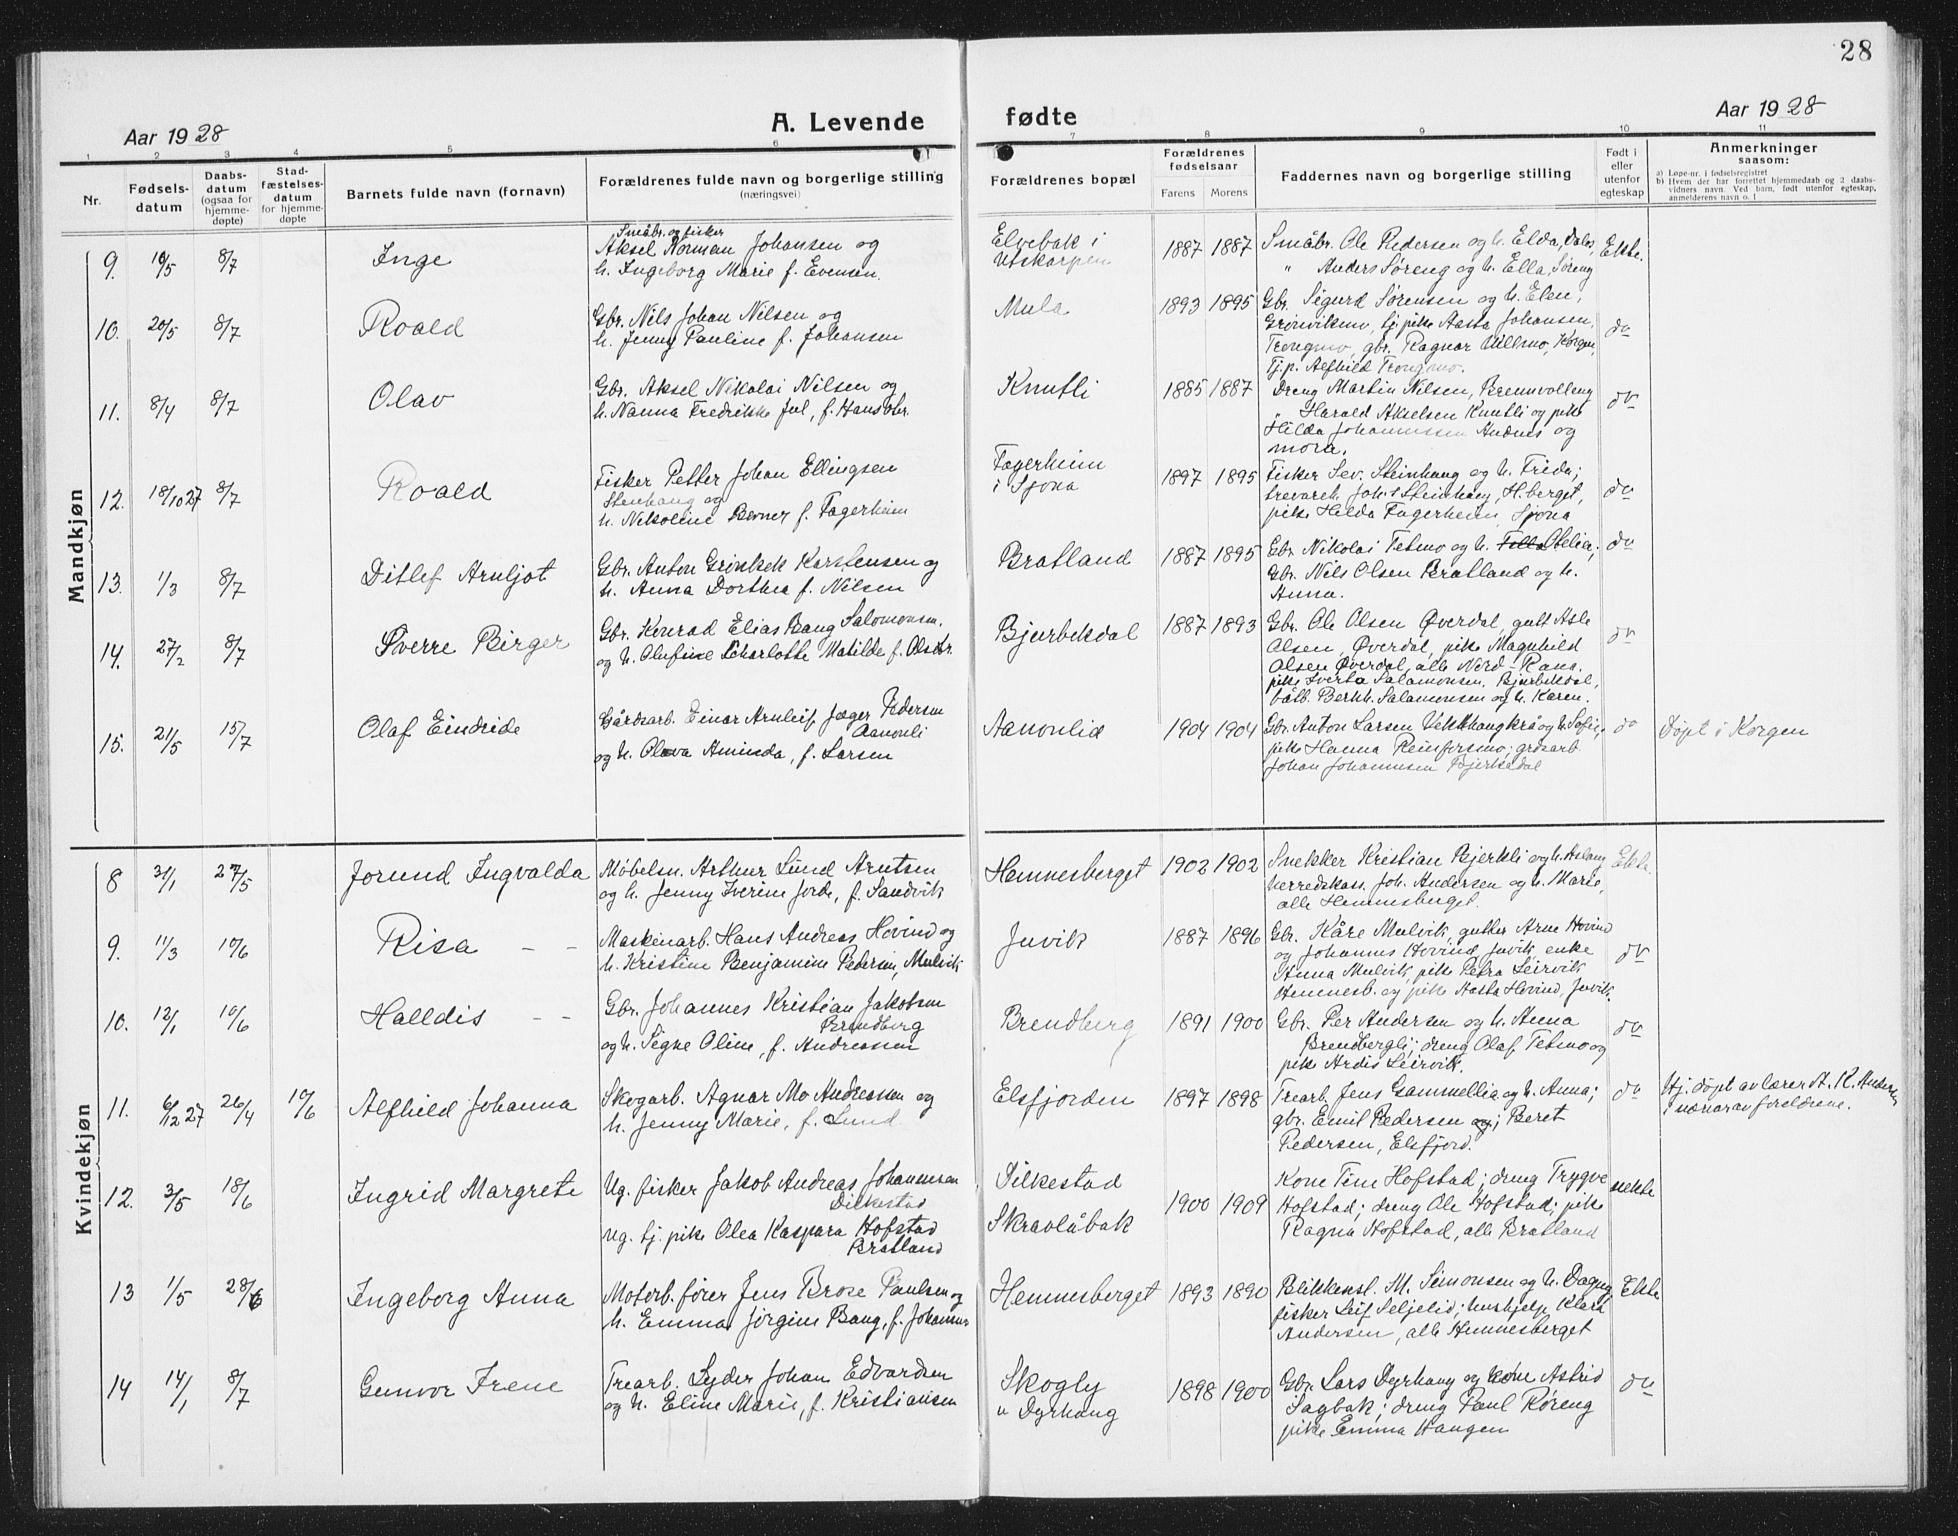 28
Aar 1928
A. Levende
fødte
Aar 1928
1 2 3 4 5 6 7 8 9 10 11
Nr.
Fødsels-
datum
Daabs-
datum
(ogsaa for
hjemme-
døpte)
Stad-
fæstelses-
datum
for hjemme-
døpte
Barnets fulde navn (fornavn)
Forældrenes fulde navn og borgerlige stilling
(næringsvei)
Forældrenes bopæl
Forældrenes
fødselsaar
Farens Morens
Faddernes navn og borgerlige stilling
Født i
eller
utenfor
egteskap
Anmerkninger
saasom:
a) Løpe-nr. i fødselsregistret
b) Hvem der har forrettet hjemmedaab og 2 daabs-
vidners navn. Ved barn, født utenfor egteskap,
anmelderens navn o. l
Mandkjøn
9. 10/5 8/7 Inge
Småbr. og fisker
Aksel Norman Johansen og
h. Ingeborg Marie f. Evensen.
Elvebak i
Utskarpen
1887 1887
Småbr. Ole Pedersen og h. Elda, Dalos,
" Anders Søreng og h. Ella, Søreng
Ekte.
10. 20/5 8/7 Roald
Gbr. Nils Johan Nilsen og
h. Jenny Pauline f. Johansen
Mula
1893 1895
Gbr. Sigurd Sørensen og h. Elen,
Grønvikmo, tj.pike Aasta Johansen,
Trongmo, gbr. Ragnar Villmo, Korgen,
Tj.p. Alfhild Trongmo.
do
11. 8/4 8/7 Olav
Gbr. Aksel Nikolai Nilsen og
h. Nanna Fredrikke Jul, f. Hansdtr.
Knutli
1885 1887
Dreng Martin Nilsen, Brennvolleng
" Harald Akselsen Knutli og pike
Hilda Johannessen Andnes og
mora.
do
12. 18/10 27 8/7 Roald
Fisker Petter Johan Ellingsen
Stenhaug og
h. Nikoline Berner f. Fagerheim
Fagerheim
i Sjona
1897 1895
Fisker Sev. Steinhaug og h. Frida;
trevareh. Joh. Steinhaug, H.berget,
pike Hilda Fagerheim, Sjona
do
13. 1/3 8/7 Ditlef Arnljot
Gbr. Anton Grønbek Karstensen og
h. Anna Dorthea f. Nilsen
Bratland
1887 1895
Gbr. Nikolai Tetmo og h. Otelie,
Gbr. Nils Olsen Bratland og h.
Anna.
do
14. 27/2 8/7 Sverre Birger
Gbr. Konrad Elias Bang Salomonsen.
og h. Olufine Charlotte Matilde f. Olsdtr.
Bjurbekdal
1887 1893
Gbr. Ole Olsen Øverdal, gutt Asle
Olsen, Øverdal, pike Magnhild
Olsen Øverdal, alle Nord-Rana.
pike Sverta Salamonsen, Bjurbekdal,
båtb. Bernh. Salamonsen og h. Karen.
do
15. 21/5 15/7 Olaf Eindride
Gårdsarb. Einar Arnleif Jæger Pedersen
Aanonli
og h. Olava Aminda, f. Larsen
Aanonlid
1904 1904
Gbr. Anton Larsen Vekkhaugkrå og h. Sofie,
pike Hanna Reinforsmo; grdsarb
Johan Johannesen Bjerkedal
do
Døpt i Korgen
Kvindekjøn
8 31/1 27/5 Jorund Ingvalda
Møbelsn. Arthur Lund Arntsen
og h. Jenny Iverine Jorde, f. Sandvik
Hemnesberget
1902 1902
Snekker Kristian Bjerkli og h. Aslaug
herredskass. Joh. Andersen og h. Marie,
alle Hemnesberget.
Ekte.
9. 11/3 10/6 Risa - -
Maskinarb. Hans Andreas Hovind og
h. Kristine Benjamine Pedersen, Mulvik
Juvik
1887 1896
Gbr. Kåre Mulvik, gutter Arne Hovind
og Johannes Hovind, Juvik, enke
Anna Mulvik, pike Petra Leirvik
Hemnesb. og pike Aasta Hovind, Juvik.
do
10. 12/1 10/6 Halldis - -
Gbr. Johannes Kristian Jakobsen
Brendberg
og h. Signe Oline, f. Andreassen
Brendberg
1891 1900
Gbr. Per Andersen og h. Anna
Brendbergli; dreng Olaf Tetmo og
pike Ardis Leirvik.
do
11. 6/12 27 26/4 10/6 Alfhild Johanna
Skogarb. Agnar Mo Andreassen og
h. Jenny Marie, f. Lund.
Elsfjorden
1897 1898
Trearb. Jens Gammellia og h. Anna;
gbr. Emil Pedersen og; Beret
Pedersen, Elsfjord.
do
Hj. døpt av lærer A. K. Andersen
i nærvær av foreldrene.
12. 3/5 18/6 Ingrid Margrete
Ug. fisker Jakob Andreas Johannesen
Dilkestad
Ug. tj. pike Olea Kaspara Hofstad
Bratland
Dilkestad
Skravlåbak
1900 1909
Kone Tine Hofstad; dreng Trygve
Hofstad; dreng Ole Hofstad; pike
Ragna Hofstad, alle Bratland
uekte
13 1/5 28/6 Ingeborg Anna
Motorb.fører Jens Brose Paulsen og
h. Emma Jørgine Bang, f. Johannes
Hemnesberget
1893 1890
Blikkensl. M. Simonsen og h. Dagny,
fisker Leif Seljelid; hushjelp Klara
Andersen, alle Hemnesberget
Ekte
14 14/1 8/7 Gunvor Irene
Trearb. Lyder Johan Edvardsen
og h. Eline Marie, f. Kristiansen
Skogly
u Dyrhaug
1898 1900
Gbr. Lars Dyrhaug og kone Astrid
Sagbak; dreng Paul Røreng
pike Emma Haugen
do